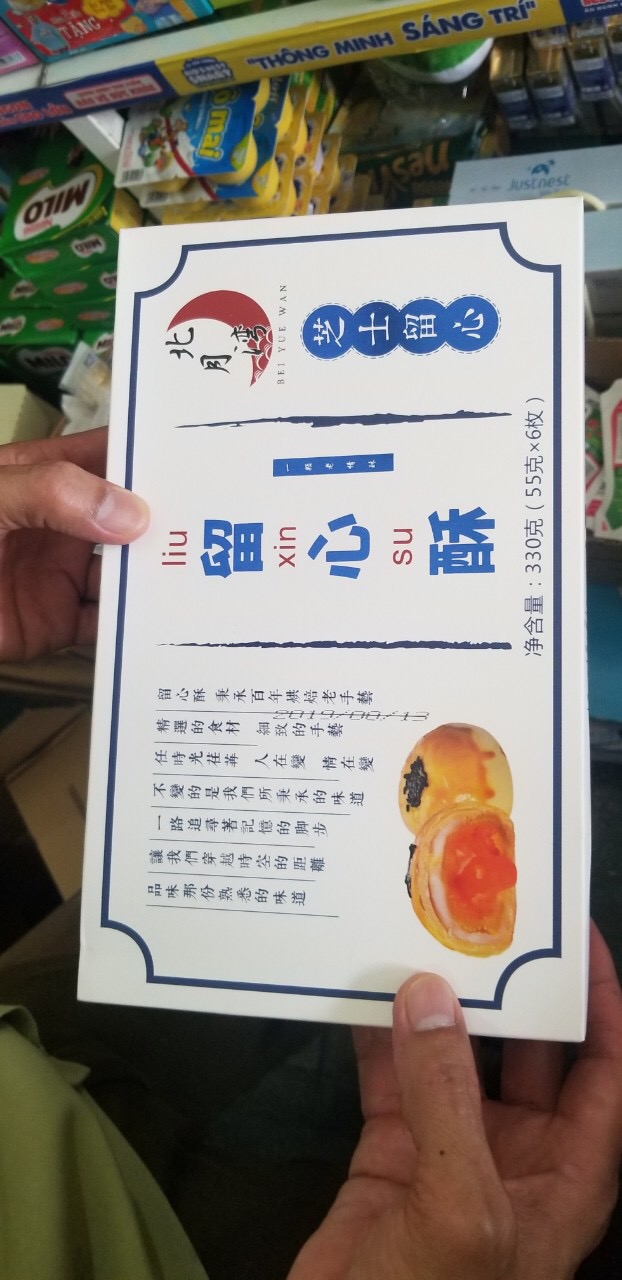 TẶNG
"THÔNG MINH SÁNG TRÍ"
MILO
Justnest
北月湾
BEI YUE WAN
芝士留心
liu xin su
留心酥
净含量：330克（55克×6枚）
留心酥 秉承百年烘焙老手藝
精選的食材 細致的手藝
任時光荏苒 人在變 情在變
不變的是我們所秉承的味道
一路追尋著記憶的脚步
讓我們穿越時空的距離
品味那份熟悉的味道